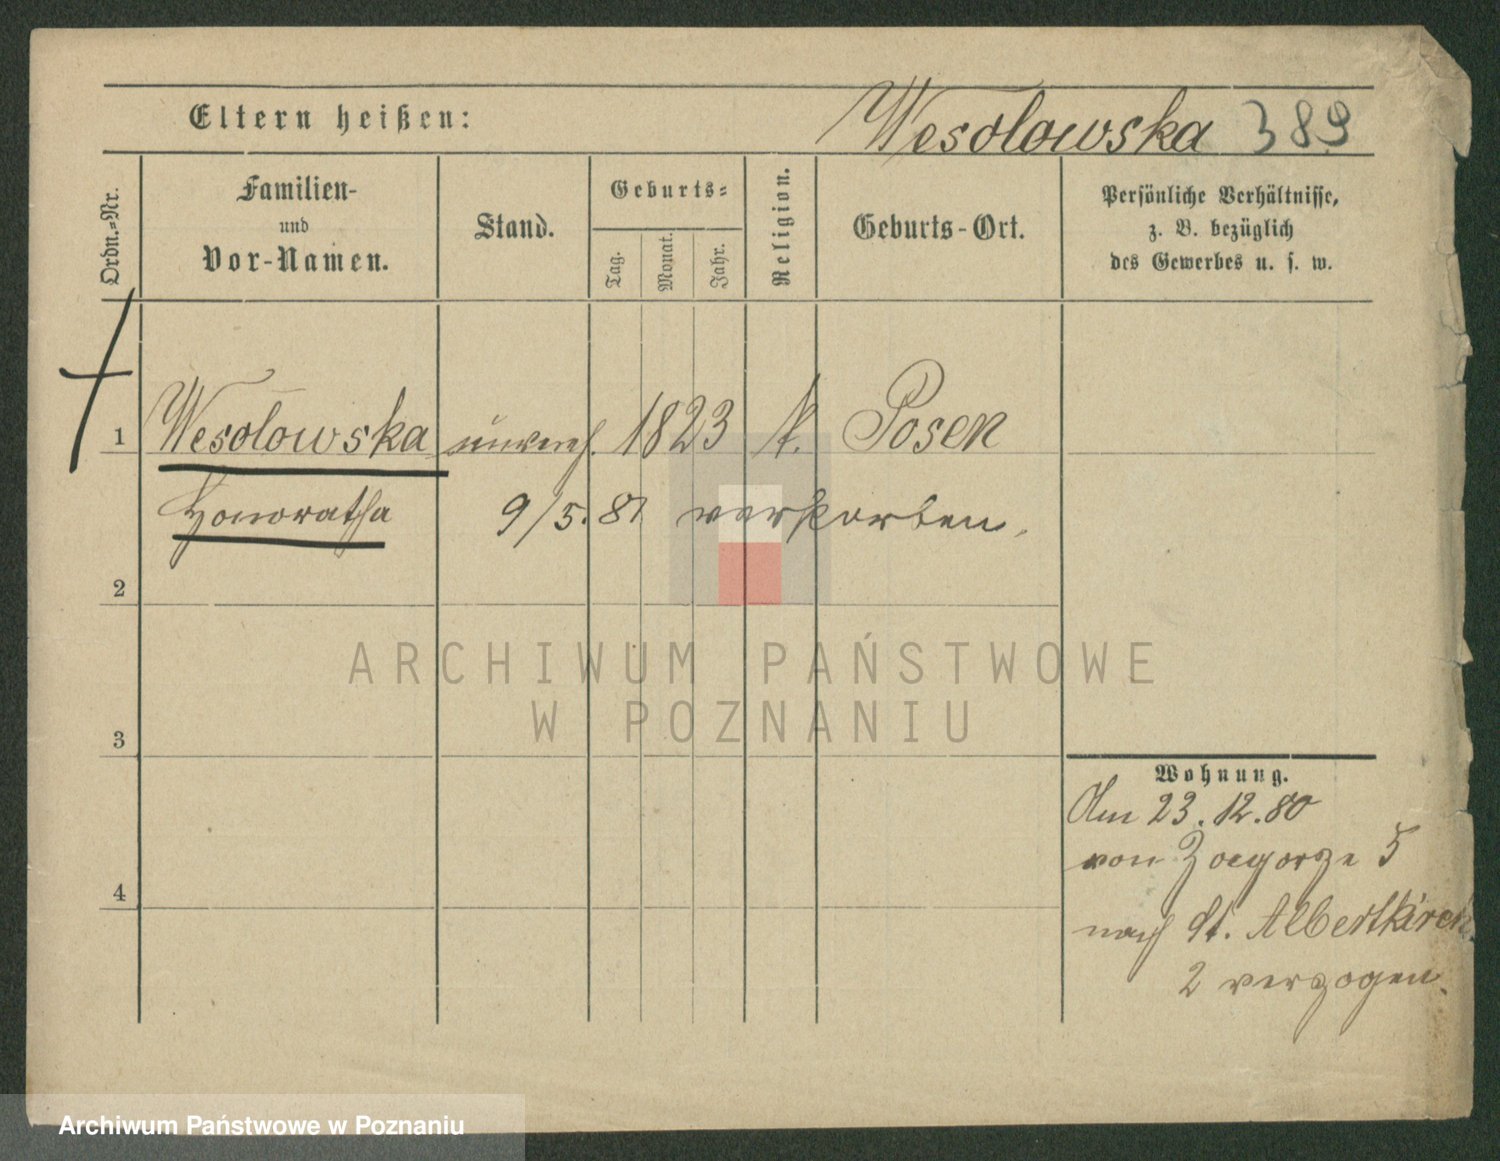 Eltern heißen: Wesolowska 389
Ordn.-Nr.
Familien-
und
Vor-Namen.
Stand.
Geburts-
Tag.
Monat.
Jahr.
Religion.
Geburts-Ort.
Persönliche Verhältnisse,
z. B. bezüglich
des Gewerbes u. s. w.
1 Wesolowska unvereh. 1823 k. Posen
Honoratha 9/5. 81 verstorben.
2
3
4
Wohnung.
Am 23.12.80
von Zagorze 5
nach St. Albertkirch
2 verzogen.
ARCHIWUM PAŃSTWOWE
W POZNANIU
Archiwum Państwowe w Poznaniu